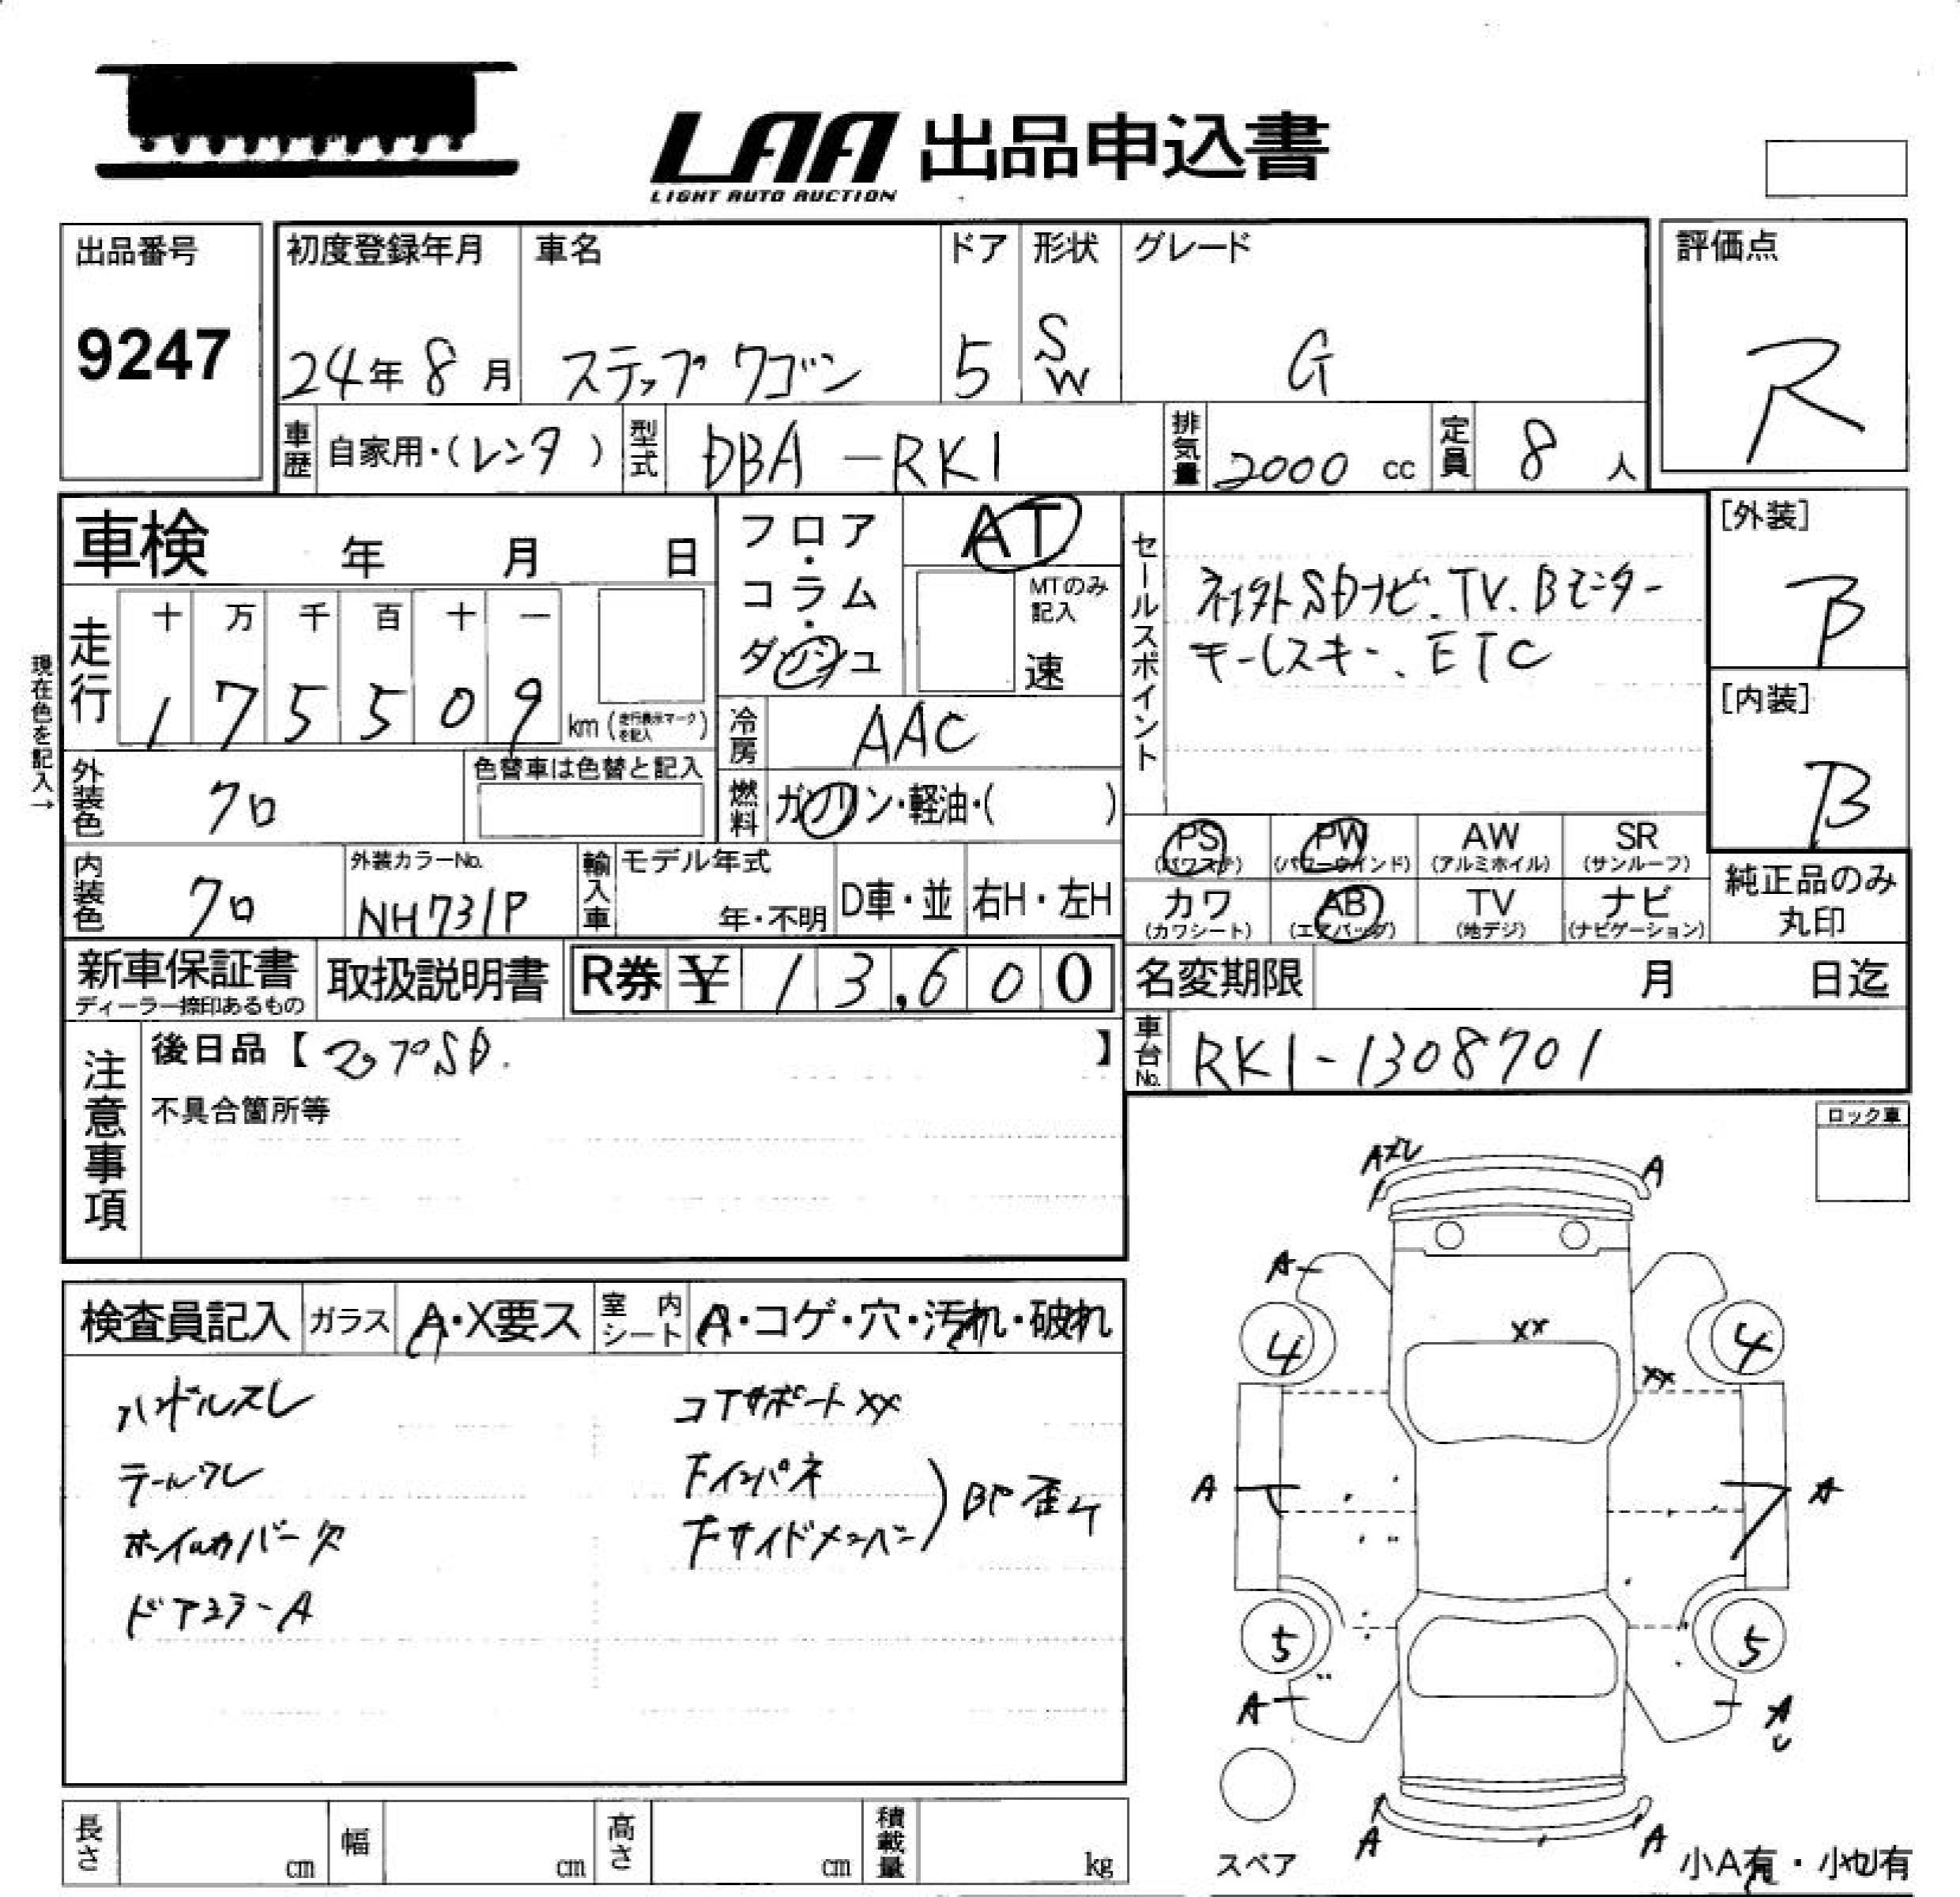 LAA 出品申込書
LIGHT AUTO AUCTION
出品番号
9247
初度登録年月
24年 8月
車名
ステップワゴン
ドア
5
形状
SW
グレード
G
評価点
R
車歴 自家用・(レンタ)
型式 DBA-RK1
排気量 2000 cc
定員 8 人
車検 年 月 日
フロア・コラム・ダッシュ
AT
MTのみ記入
速
セールスポイント
社外SDナビ.TV.Bモニター
キーレスキー.ETC
[外装]
B
[内装]
B
現在色を記入→
走行
十 万 千 百 十 一
1 7 5 5 0 9 km (走行表示マークを記入)
冷房 AAC
外装色 クロ
色替車は色替と記入
燃料 ガソリン・軽油・( )
PS (パワステ)
PW (パワーウインド)
AW (アルミホイル)
SR (サンルーフ)
内装色 クロ
外装カラーNo.
NH731P
輸入車 モデル年式
年・不明
D車・並
右H・左H
カワ (カワシート)
AB (エアバッグ)
TV (地デジ)
ナビ (ナビゲーション)
純正品のみ丸印
新車保証書
ディーラー捺印あるもの
取扱説明書
R券 ¥ 13,600
名変期限 月 日迄
車台No. RK1-1308701
注意事項
後日品【マップSD. 】
不具合箇所等
ロック車
検査員記入
ガラス A・X要ス
室内シート A・コゲ・穴・汚れ・破れ
ハンドルスレ
テールワレ
ホイルカバー欠
ドアミラーA
コアサポートXX
Fインパネ
Fサイドメンバー
BP 歪ム
A
A
A
XX
XX
4
4
A
A
5
5
A
A
A
A
スペア
小A有・小凹有
長さ cm
幅 cm
高さ cm
積載量 kg